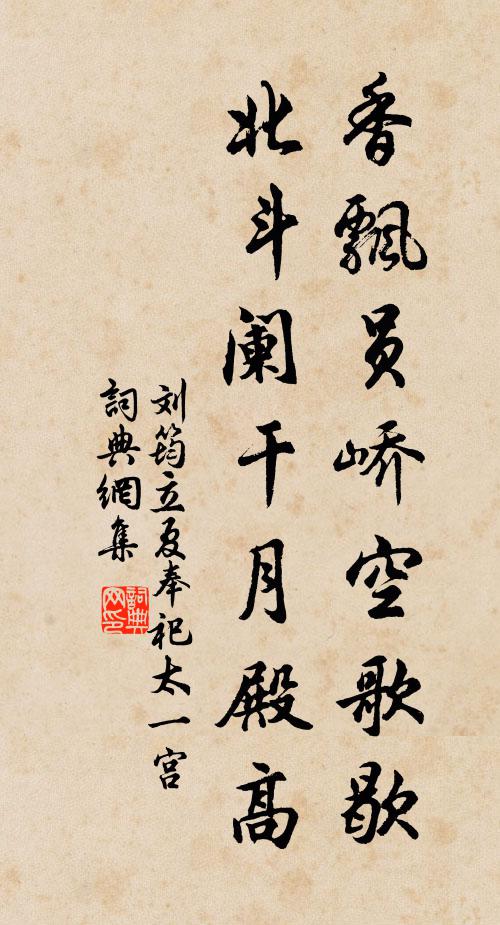 香飘员峤空歌歇
北斗阑干月殿高
刘筠立夏奉祀太一宫
詞典網集
詞典网印